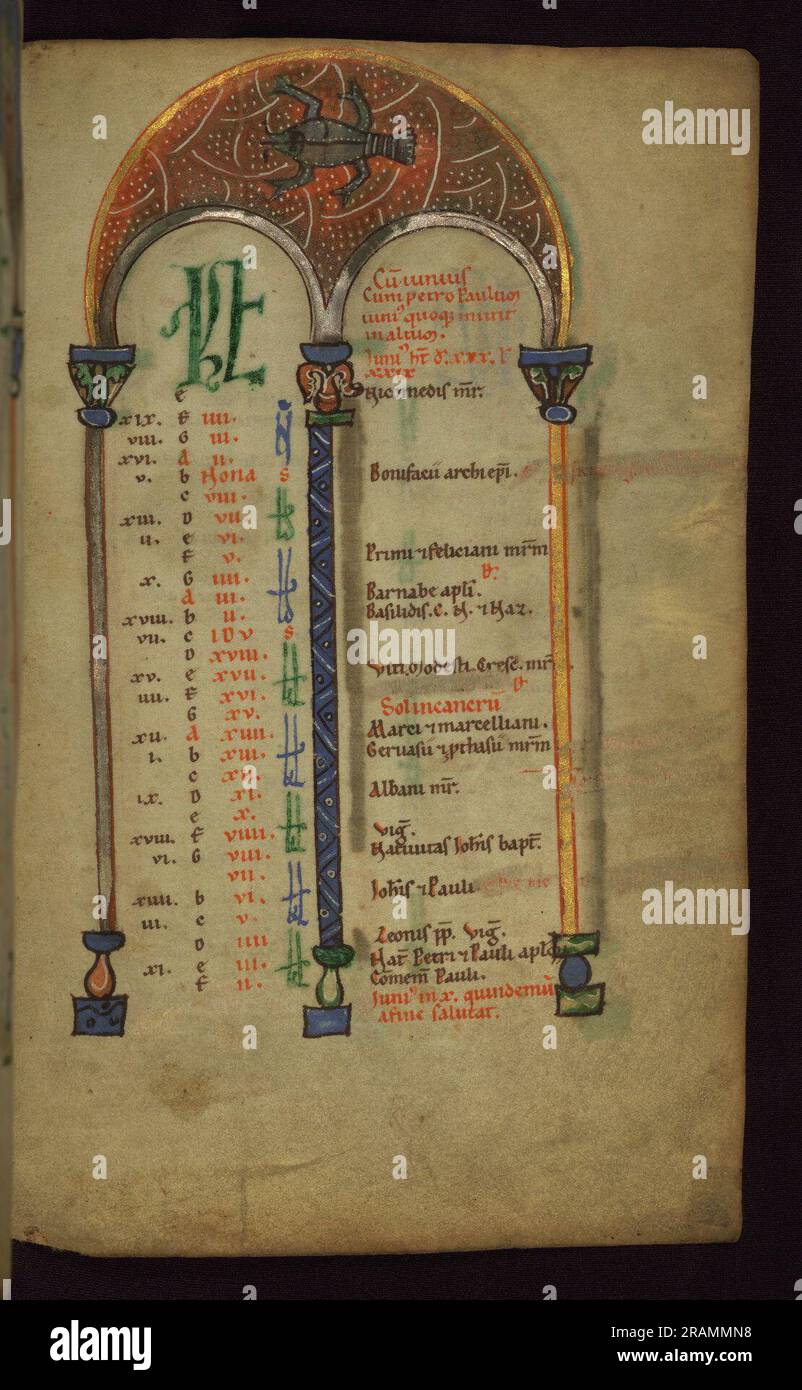 KL
Cū iunius
Cum petro Paulum
iuniꝰ quoqꝫ mittit
in altum.
Juniꝰ ht d. xxx. l
xxix
e Nicomedis mr.
xix. f iiii. N
viii. G iii.
xvi. A ii.
v. b Nona s Bonifacii archiepi.
c viii.
xiii. D vii
ii. e vi.
f v. Primi et feliciani mrm
x. G iiii.
A iii. Barnabe apli.
xviii. b ii. Basilidis. C. N. et Naz.
vii. c IDV s
D xviii.
xv. e xvii. Viti. Modesti. Cresc. mr
iiii. f xvi.
G xv. Sol in cancrū
xii. A xiiii. Marci et marcelliani.
i. b xiii. Geruasii et ꝓthasii mrm
c xii.
ix. D xi. Albani mr.
e x.
xviii. f viiii. vig.
vi. G viii. Natiuitas Johis bapt.
vii.
xiiii. b vi. Johis et Pauli
iii. c v.
D iiii Leonis pp. vig.
xi. e iii. Nat Petri et Pauli aplo
f ii. Comem Pauli.
Juniꝰ in x. quindenū
a fine salutat.
alamy
Image ID: 2RAMMN8
www.alamy.com